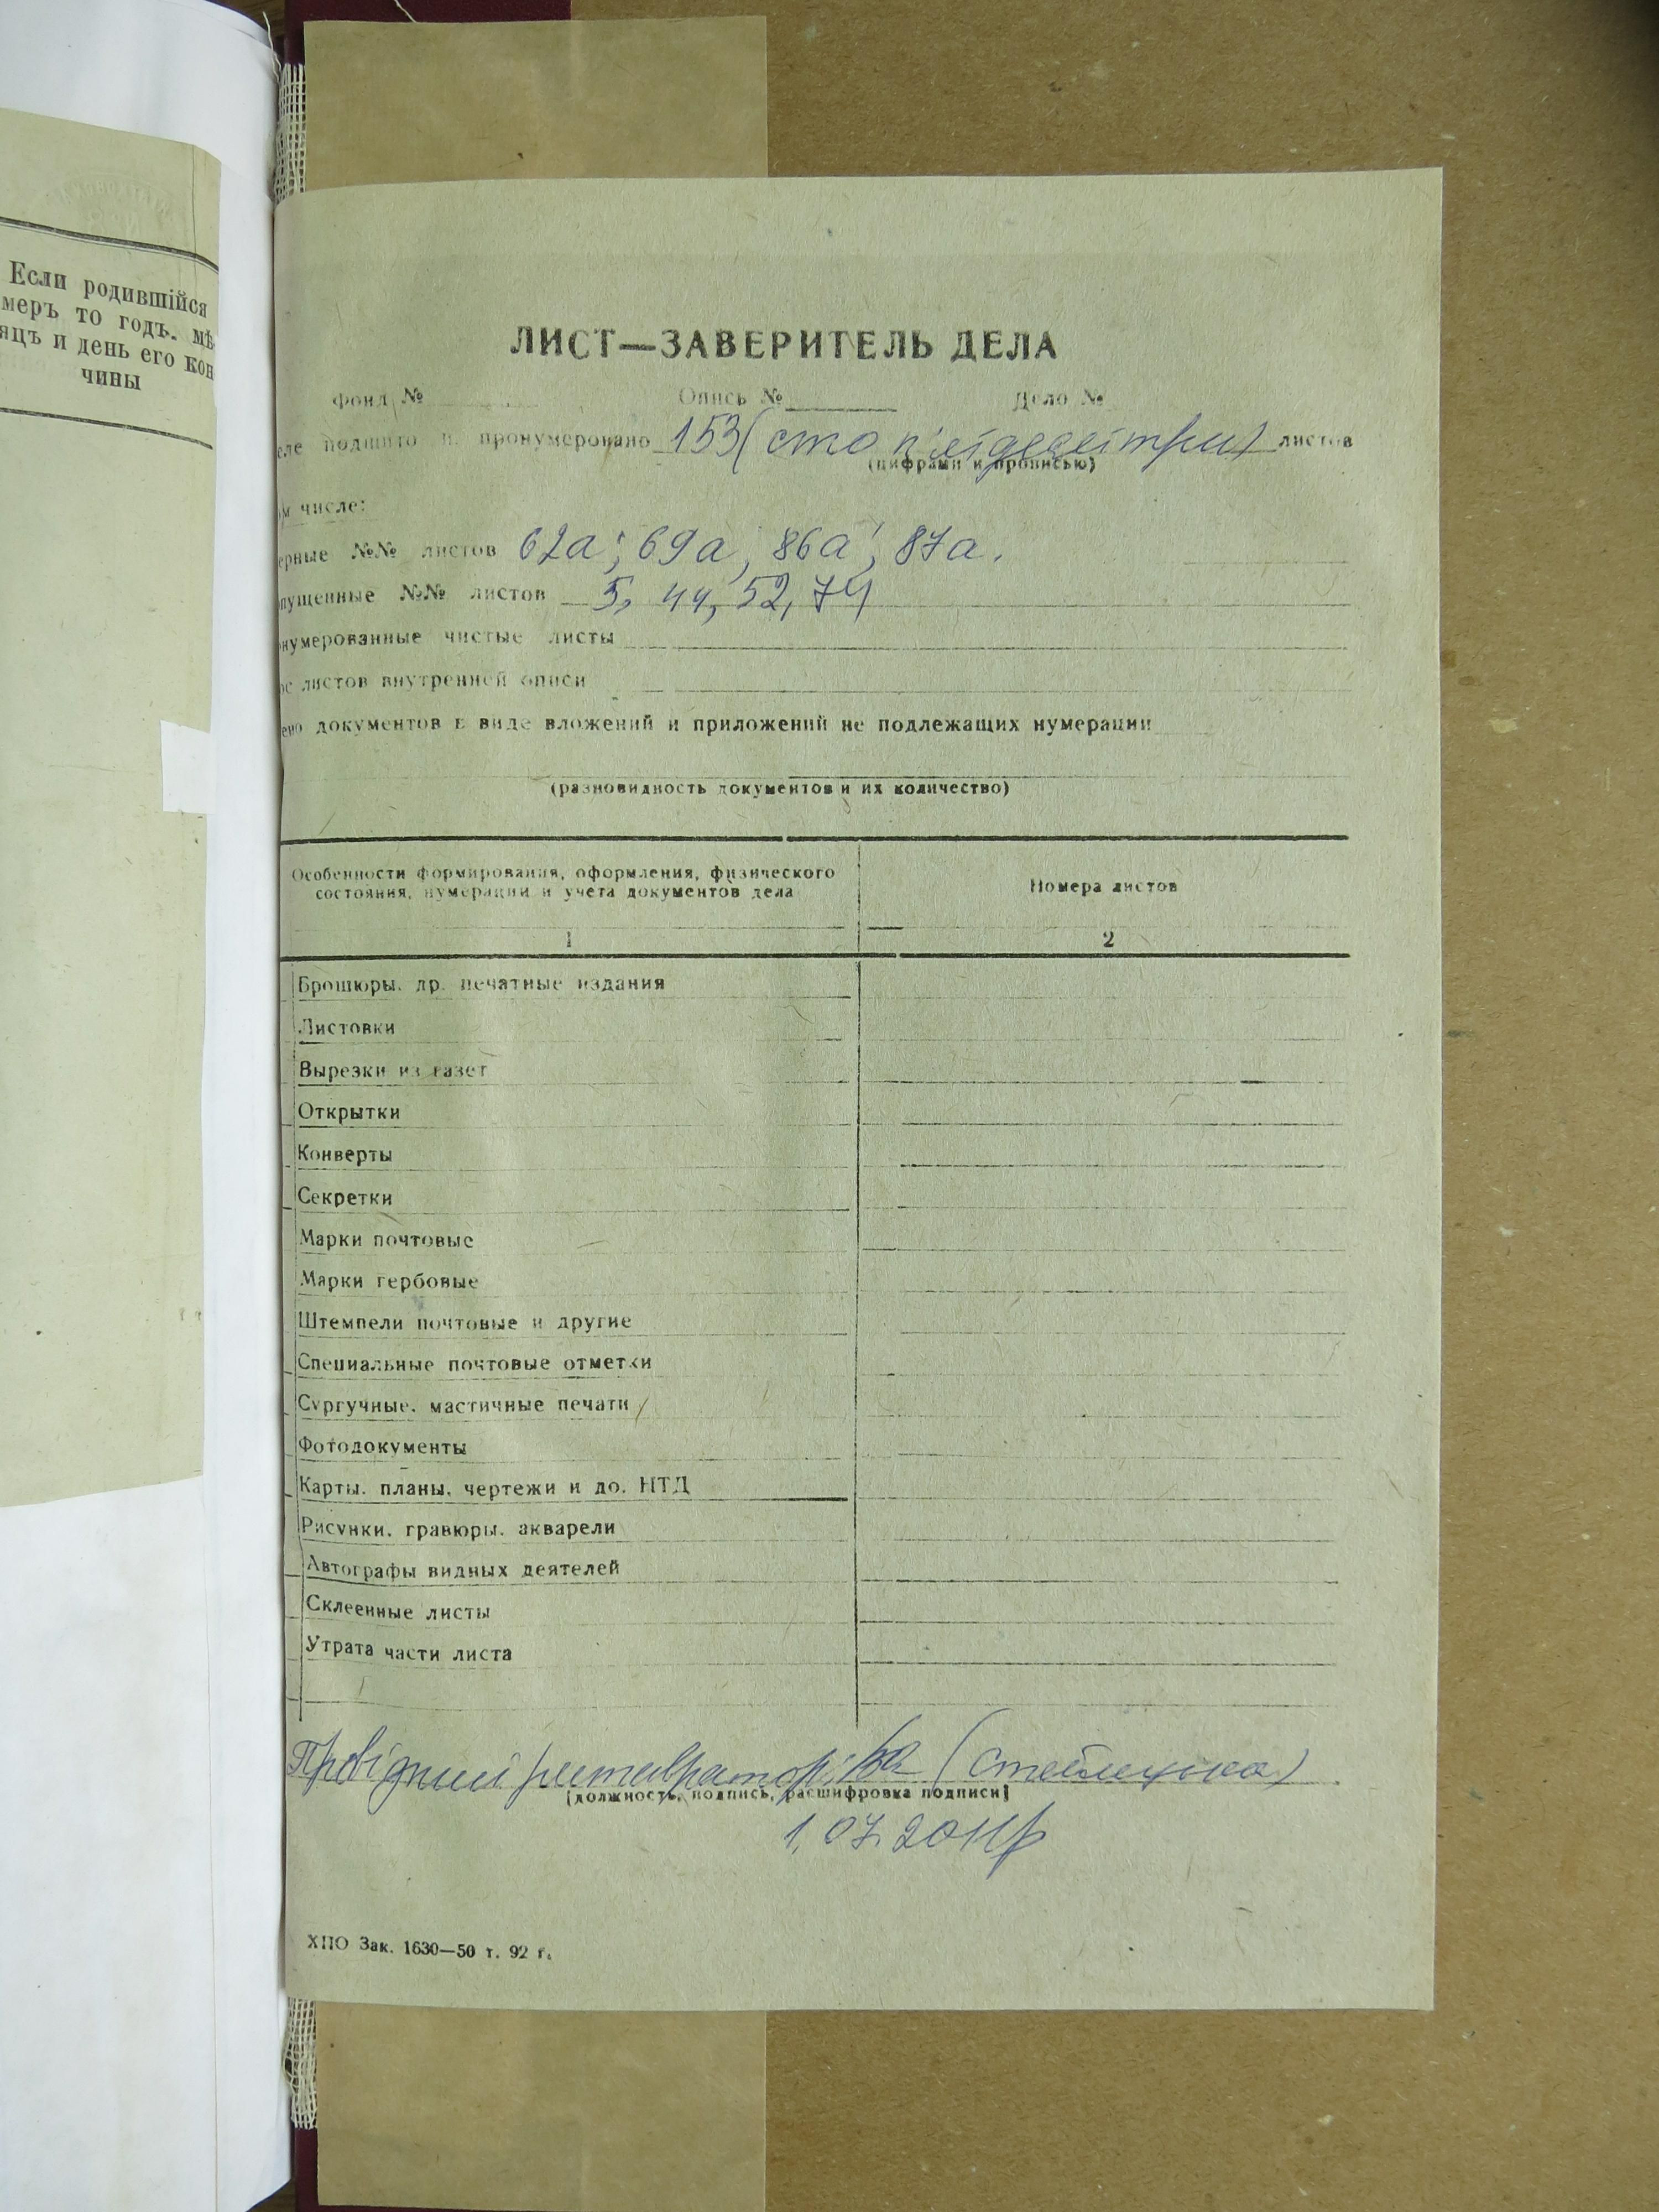 Если родившійся
меръ то годъ. мѣ
яцъ и день его кон
чины
ЛИСТ—ЗАВЕРИТЕЛЬ ДЕЛА
фонд № Опись № Дело №
еле подшито и пронумеровано 153 (сто п'ятдесят три) листов
(цифрами и прописью)
м числе:
ерные №№ листов 62а; 69а, 86а, 87а.
пущенные №№ листов 5, 44, 52, 74
нумерованные чистые листы
ос листов внутренней описи
ено документов в виде вложений и приложений не подлежащих нумерации
(разновидность документов и их количество)
Особенности формирования, оформления, физического
состояния, нумерации и учета документов дела
Номера листов
1 2
Брошюры. др. печатные издания
Листовки
Вырезки из газет
Открытки
Конверты
Секретки
Марки почтовые
Марки гербовые
Штемпели почтовые и другие
Специальные почтовые отметки
Сургучные. мастичные печати
Фотодокументы
Карты. планы. чертежи и до. НТД
Рисунки. гравюры. акварели
Автографы видных деятелей
Склеенные листы
Утрата части листа
Провідний реставратор
(должность, подпись, расшифровка подписи)
1.07.2011р
ХПО Зак. 1630—50 т. 92 г.